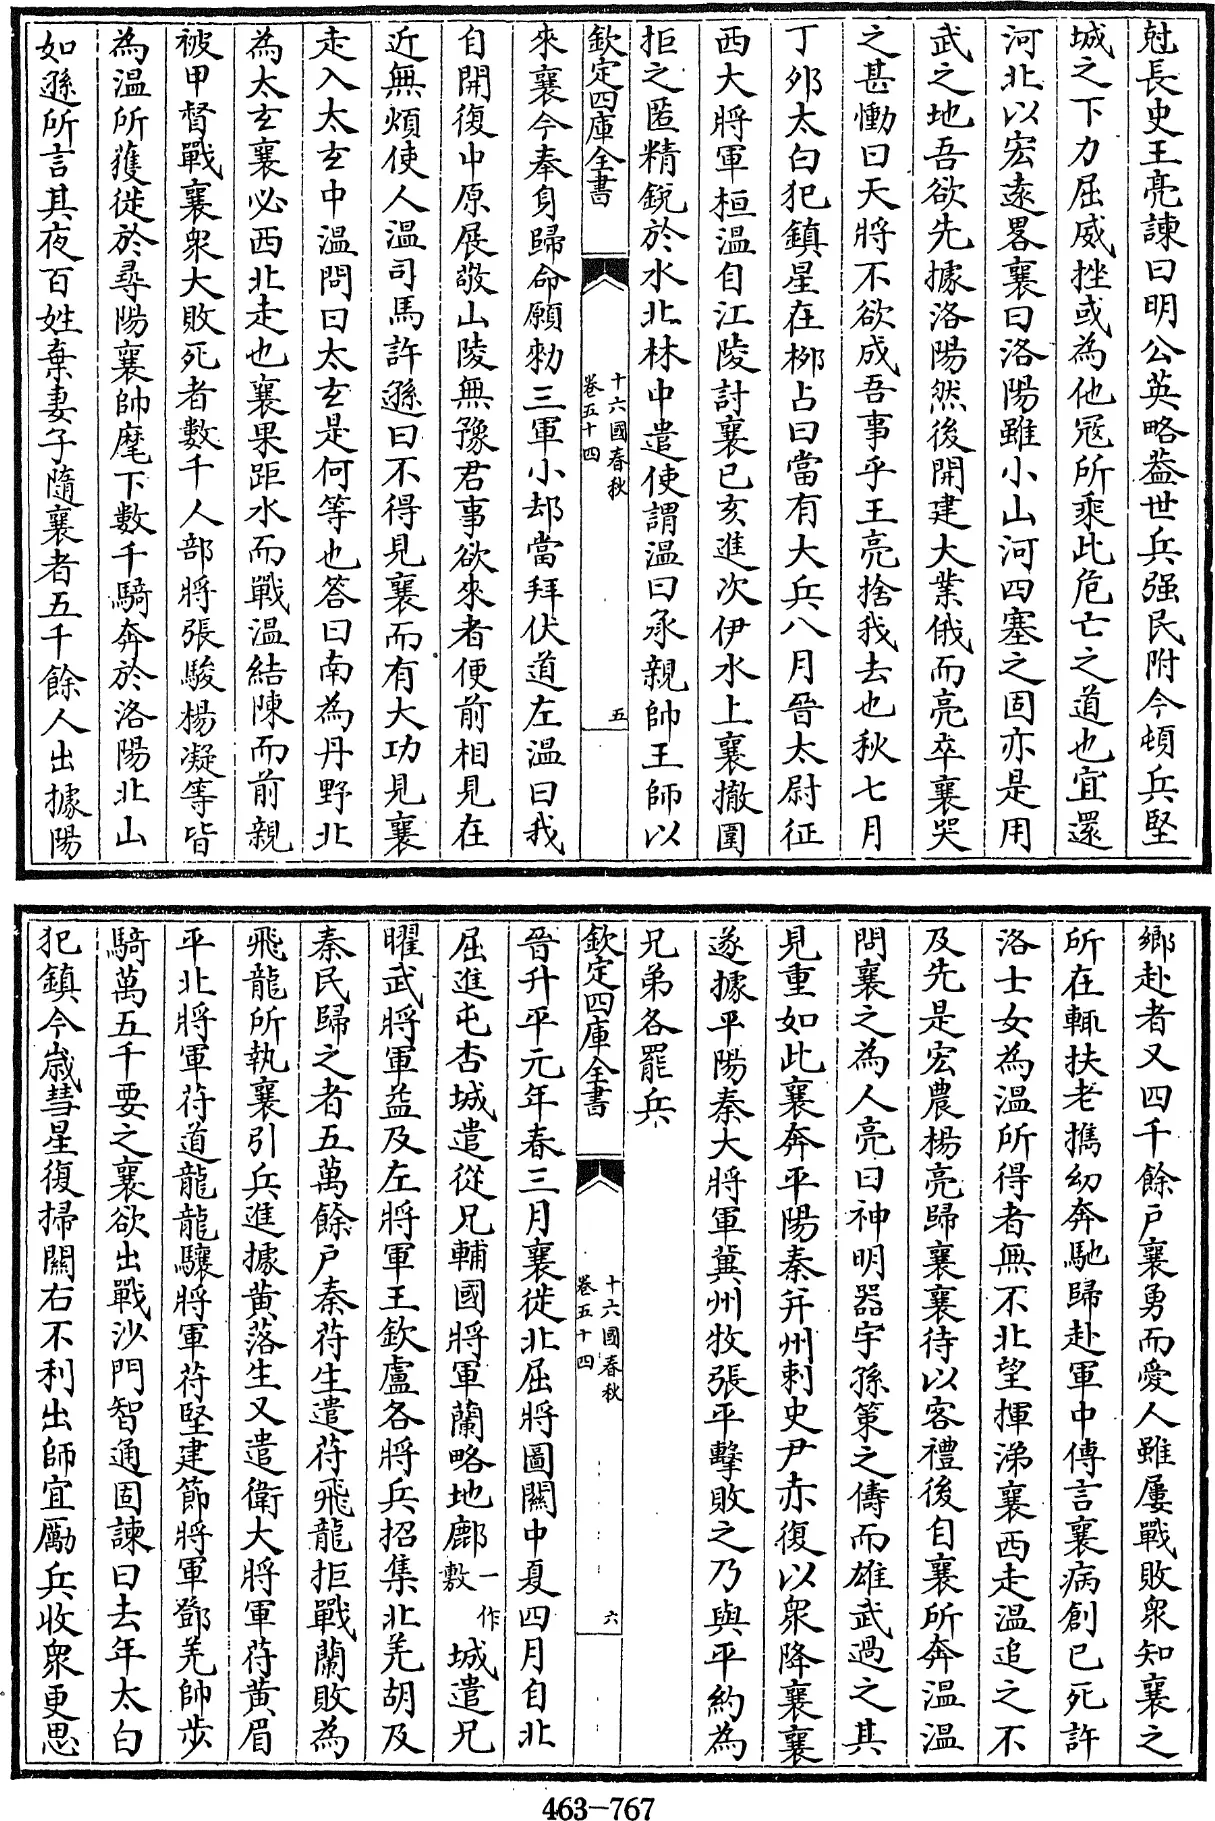 尅長史王亮諫曰明公英略葢世兵强民附今頓兵堅
城之下力屈威挫或為他冦所乘此危亡之道也宜還
河北以宏逺畧襄曰洛陽雖小山河四塞之固亦是用
武之地吾欲先據洛陽然後開建大業俄而亮卒襄哭
之甚慟曰天將不欲成吾事乎王亮捨我去也秋七月
丁夘太白犯鎮星在桺占曰當有大兵八月晉太尉征
西大將軍桓温自江陵討襄已亥進次伊水上襄撤圍
拒之匿精銳於水北林中遣使謂温曰承親帥王師以
欽定四庫全書
十六國春秋
卷五十四
五
來襄今奉身歸命願勑三軍小却當拜伏道左温曰我
自開復中原展敬山陵無豫君事欲來者便前相見在
近無煩使人温司馬許遜曰不得見襄而有大功見襄
走入太玄中温問曰太玄是何等也答曰南為丹野北
為太玄襄必西北走也襄果距水而戰温結陳而前親
被甲督戰襄衆大敗死者數千人部將張駿楊凝等皆
為温所獲徙於尋陽襄帥麾下數千騎奔於洛陽北山
如遜所言其夜百姓棄妻子隨襄者五千餘人出據陽
鄉赴者又四千餘戸襄勇而愛人雖屢戰敗衆知襄之
所在輒扶老擕幼奔馳歸赴軍中傳言襄病創已死許
洛士女為温所得者無不北望揮涕襄西走温追之不
及先是宏農楊亮歸襄襄待以客禮後自襄所奔温温
問襄之為人亮曰神明器宇孫策之儔而雄武過之其
見重如此襄奔平陽秦并州刺史尹赤復以衆降襄襄
遂據平陽秦大將軍冀州牧張平擊敗之乃與平約為
兄弟各罷兵
欽定四庫全書
十六國春秋
卷五十四
六
晉升平元年春三月襄徙北屈將圖關中夏四月自北
屈進屯杏城遣從兄輔國將軍蘭略地鄜一作敷城遣兄
曜武將軍益及左將軍王欽盧各將兵招集北羌胡及
秦民歸之者五萬餘戸秦苻生遣苻飛龍拒戰蘭敗為
飛龍所執襄引兵進據黄落生又遣衛大將軍苻黄眉
平北將軍苻道龍龍驤將軍苻堅建節將軍鄧羌帥步
騎萬五千要之襄欲出戰沙門智通固諫曰去年太白
犯鎮今嵗彗星復掃關右不利出師宜厲兵收衆更思
463-767